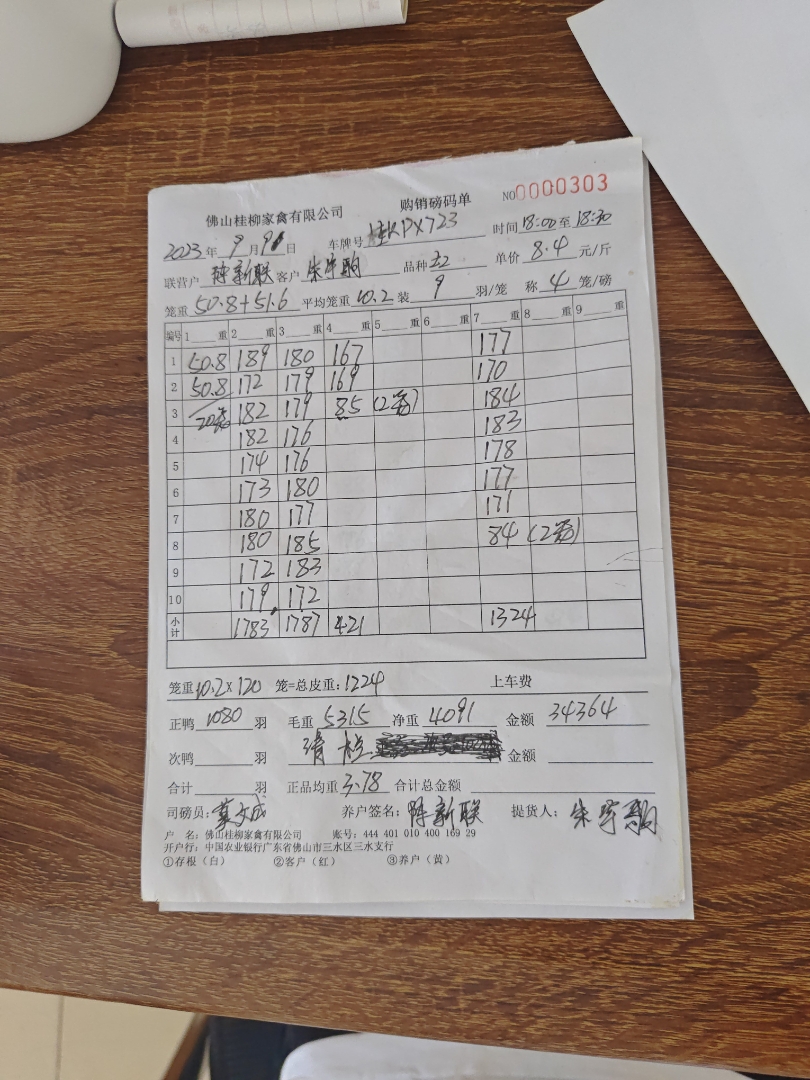 佛山桂柳家禽有限公司 购销磅码单 NO0000303
2023年9月9日 车牌号 桂KPX723 时间18:00至18:30
联营户 陈新联 客户 朱 品种 单价 8.4 元/斤
笼重 50.8+51.6 平均笼重10.2 装 9 羽/笼 称 4 笼/磅
编号 1 重 2 重 3 重 4 重 5 重 6 重 7 重 8 重 9 重
1 50.8 189 180 167 177
2 50.8 172 179 169 170
3 182 179 85 (2笼) 184
4 182 176 183
5 174 176 178
6 173 180 177
7 180 177 171
8 180 185 84 (2笼)
9 172 183
10 179 172
小计 1783 1787 421 1324
笼重10.2×120 笼=总皮重:1224 上车费
正鸭 1080 羽 毛重 5315 净重 4091 金额 34364
次鸭 羽 清栏 金额
合计 羽 正品均重 3.78 合计总金额
司磅员: 莫文成 养户签名: 陈新联 提货人: 朱
户 名: 佛山桂柳家禽有限公司 账号: 444 401 010 400 169 29
开户行: 中国农业银行广东省佛山市三水区三水支行
①存根(白) ②客户(红) ③养户(黄)